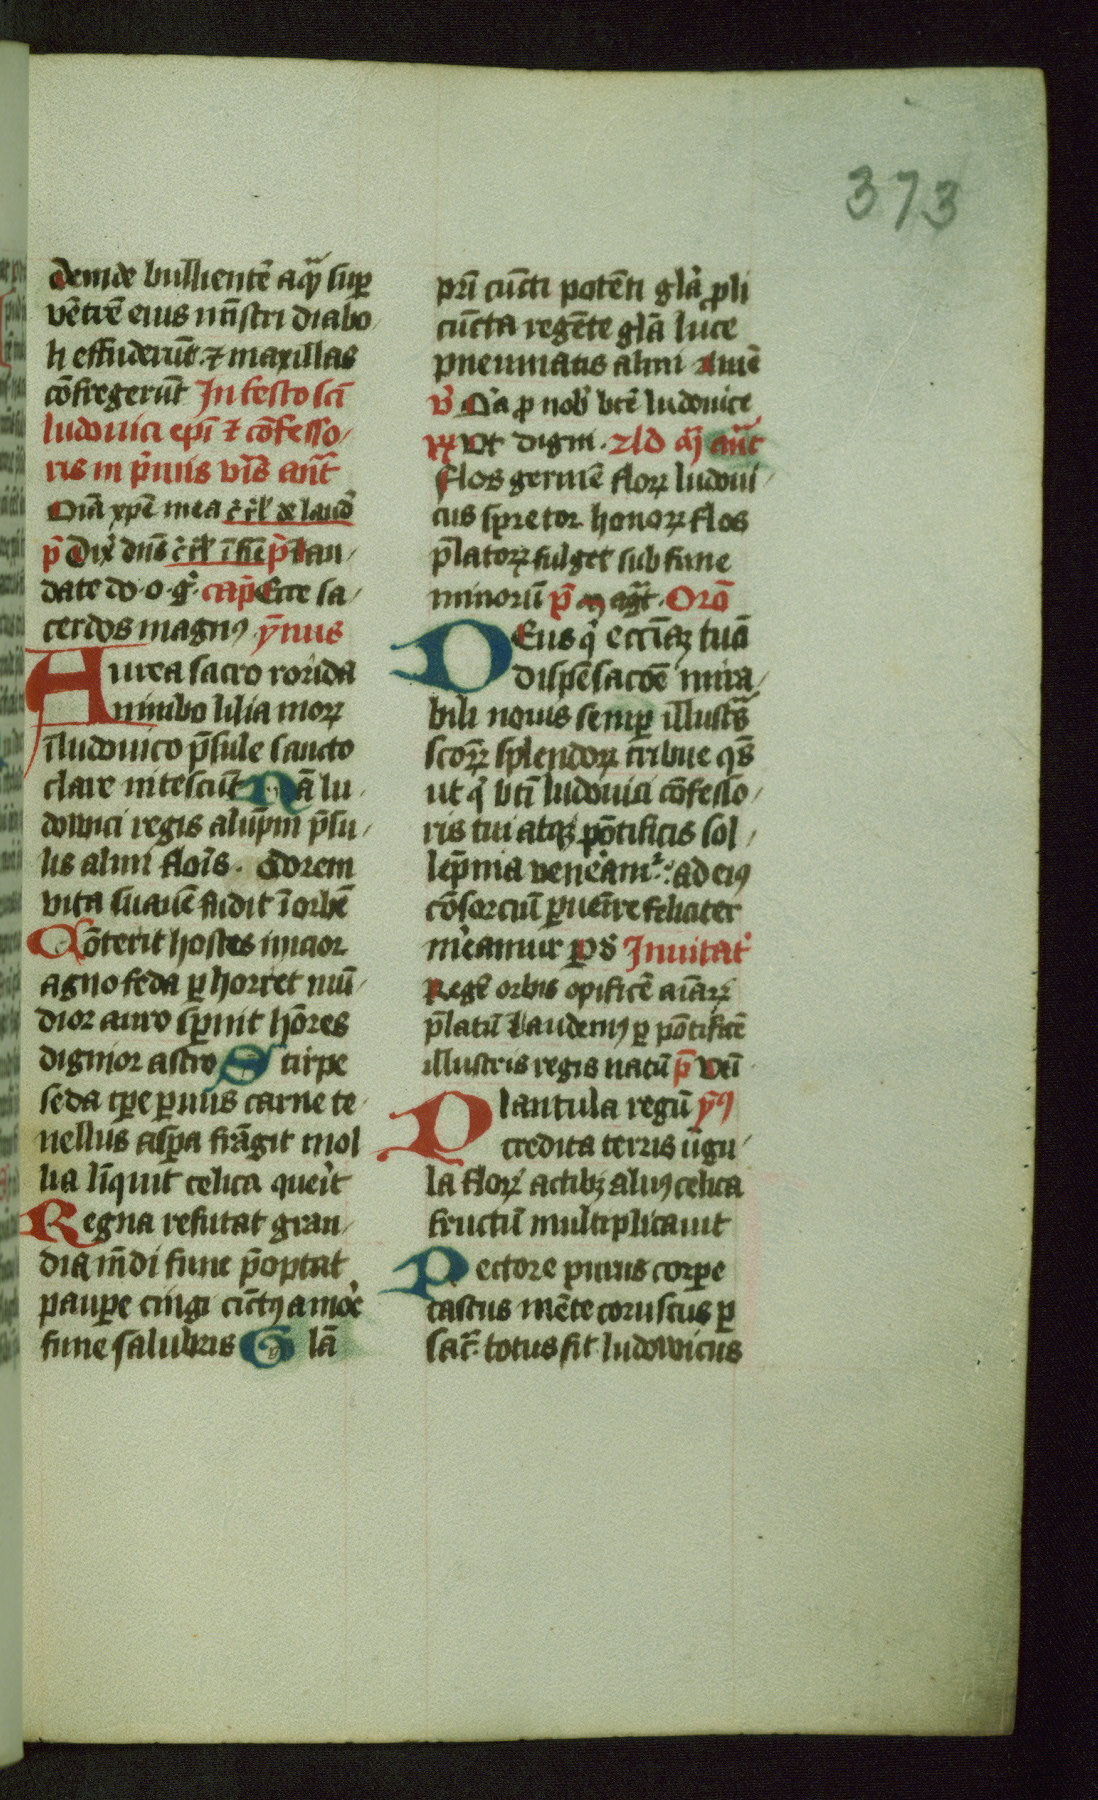 373
deinde bullientē aqȝ suꝑ
vētrē eius mīstri diabo
li effuderūt · ⁊ maxillas
cōfregerūt In festo scī
ludouici epī ⁊ cōfesso
ris in p̄mis vīs ant̄
Oīa xpē mea de laud
p̄ Dix dn̄s p̄ Lau
date do · o · g̊ · cap̄ Ecce sa
cerdos magnꝰ · ymnus
Aurea sacro rorida
nimbo lilia morꝝ
ī ludouico p̄sule sancto
clare nitescūt Nā lu
dowici regis alūpni p̄su
lis almi flor̄s · Odorem
vita suauē fudit ī orbē
Cōterit hostes micior
agno feda ꝑhorret mū
dior auro spernit hōres
dignior astro Stirpe
seda tꝑe ꝑuius carne te
nellus asꝑa frāgit mol
lia līquit celica querit
Regna refutat gran
dia mūdi fune p̄optat
pauꝑe cingi cūctꝰ amore
fune salubris Glā
pr̄i cūcti potēti glā ꝓli
cūcta regēte glā luce
pneumatis almi Amē
v̄ Ora ꝓ nob̄ btē ludouice
Ut digni · ad ant̄
Flos germē florꝝ ludoui
cus spretor honorꝝ flos
p̄latorꝝ fulget sub fune
minorū p̄ magt · Orō
Deus q̄ ecclīaȝ tuā
dispēsacōe mira
bili nouis semꝑ illustr̄s
scōrꝝ splendorꝝ tribue qs̄
ut q̄ btī ludouici cōfesso
ris tui atqȝ pōtificis sol
lēpnia veneamʳ : ad eiꝰ
cōsorciū ꝑuenire feliciter
m̄eamur ꝑ d Inuitat
Regē orbis opificē aīarꝝ
p̄latū Laudemꝰ ꝑ pōtificē
illustris regis natū p̄ ven̄
Plantula regū ymꝰ
credita terris ūgu
la florꝝ actibȝ almꝰ celica
fructū multiplicauit
Pectore purus corꝑe
castus mēte coruscus ꝑ
sac̄ totus fit ludowicus